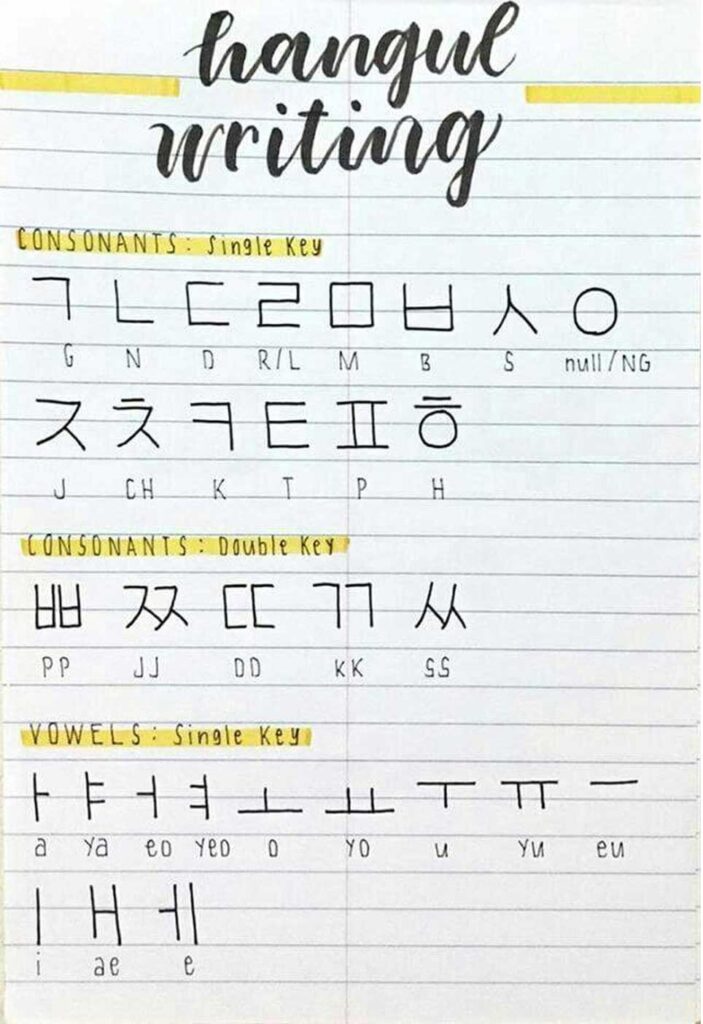 hangul
writing
CONSONANTS: Single Key
ㄱ ㄴ ㄷ ㄹ ㅁ ㅂ ㅅ ㅇ
G N D R/L M B S null/NG
ㅈ ㅊ ㅋ ㅌ ㅍ ㅎ
J CH K T P H
CONSONANTS: Double Key
ㅃ ㅉ ㄸ ㄲ ㅆ
PP JJ DD KK SS
VOWELS: Single Key
ㅏ ㅑ ㅓ ㅕ ㅗ ㅛ ㅜ ㅠ ㅡ
a ya eo yeo o yo u yu eu
ㅣ ㅐ ㅔ
i ae e